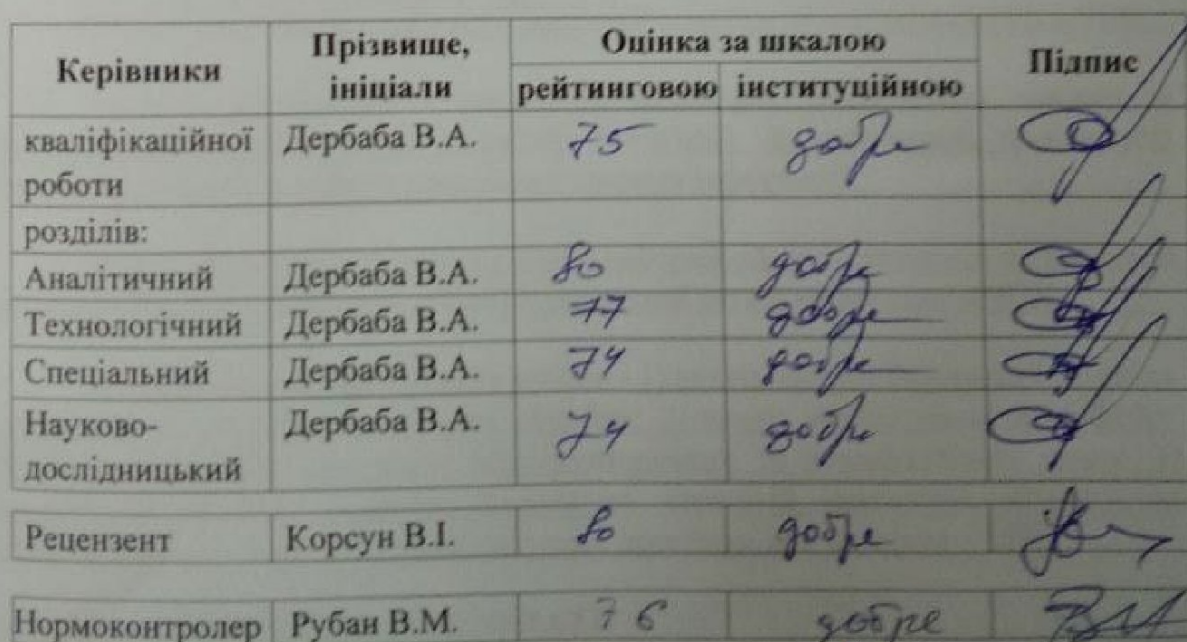 Керівники Прізвище, ініціали Оцінка за шкалою Підпис
рейтинговою інституційною
кваліфікаційної роботи Дербаба В.А. 75 добре
розділів:
Аналітичний Дербаба В.А. 80 добре
Технологічний Дербаба В.А. 77 добре
Спеціальний Дербаба В.А. 74 добре
Науково-дослідницький Дербаба В.А. 74 добре
Рецензент Корсун В.І. 80 добре
Нормоконтролер Рубан В.М. 76 добре